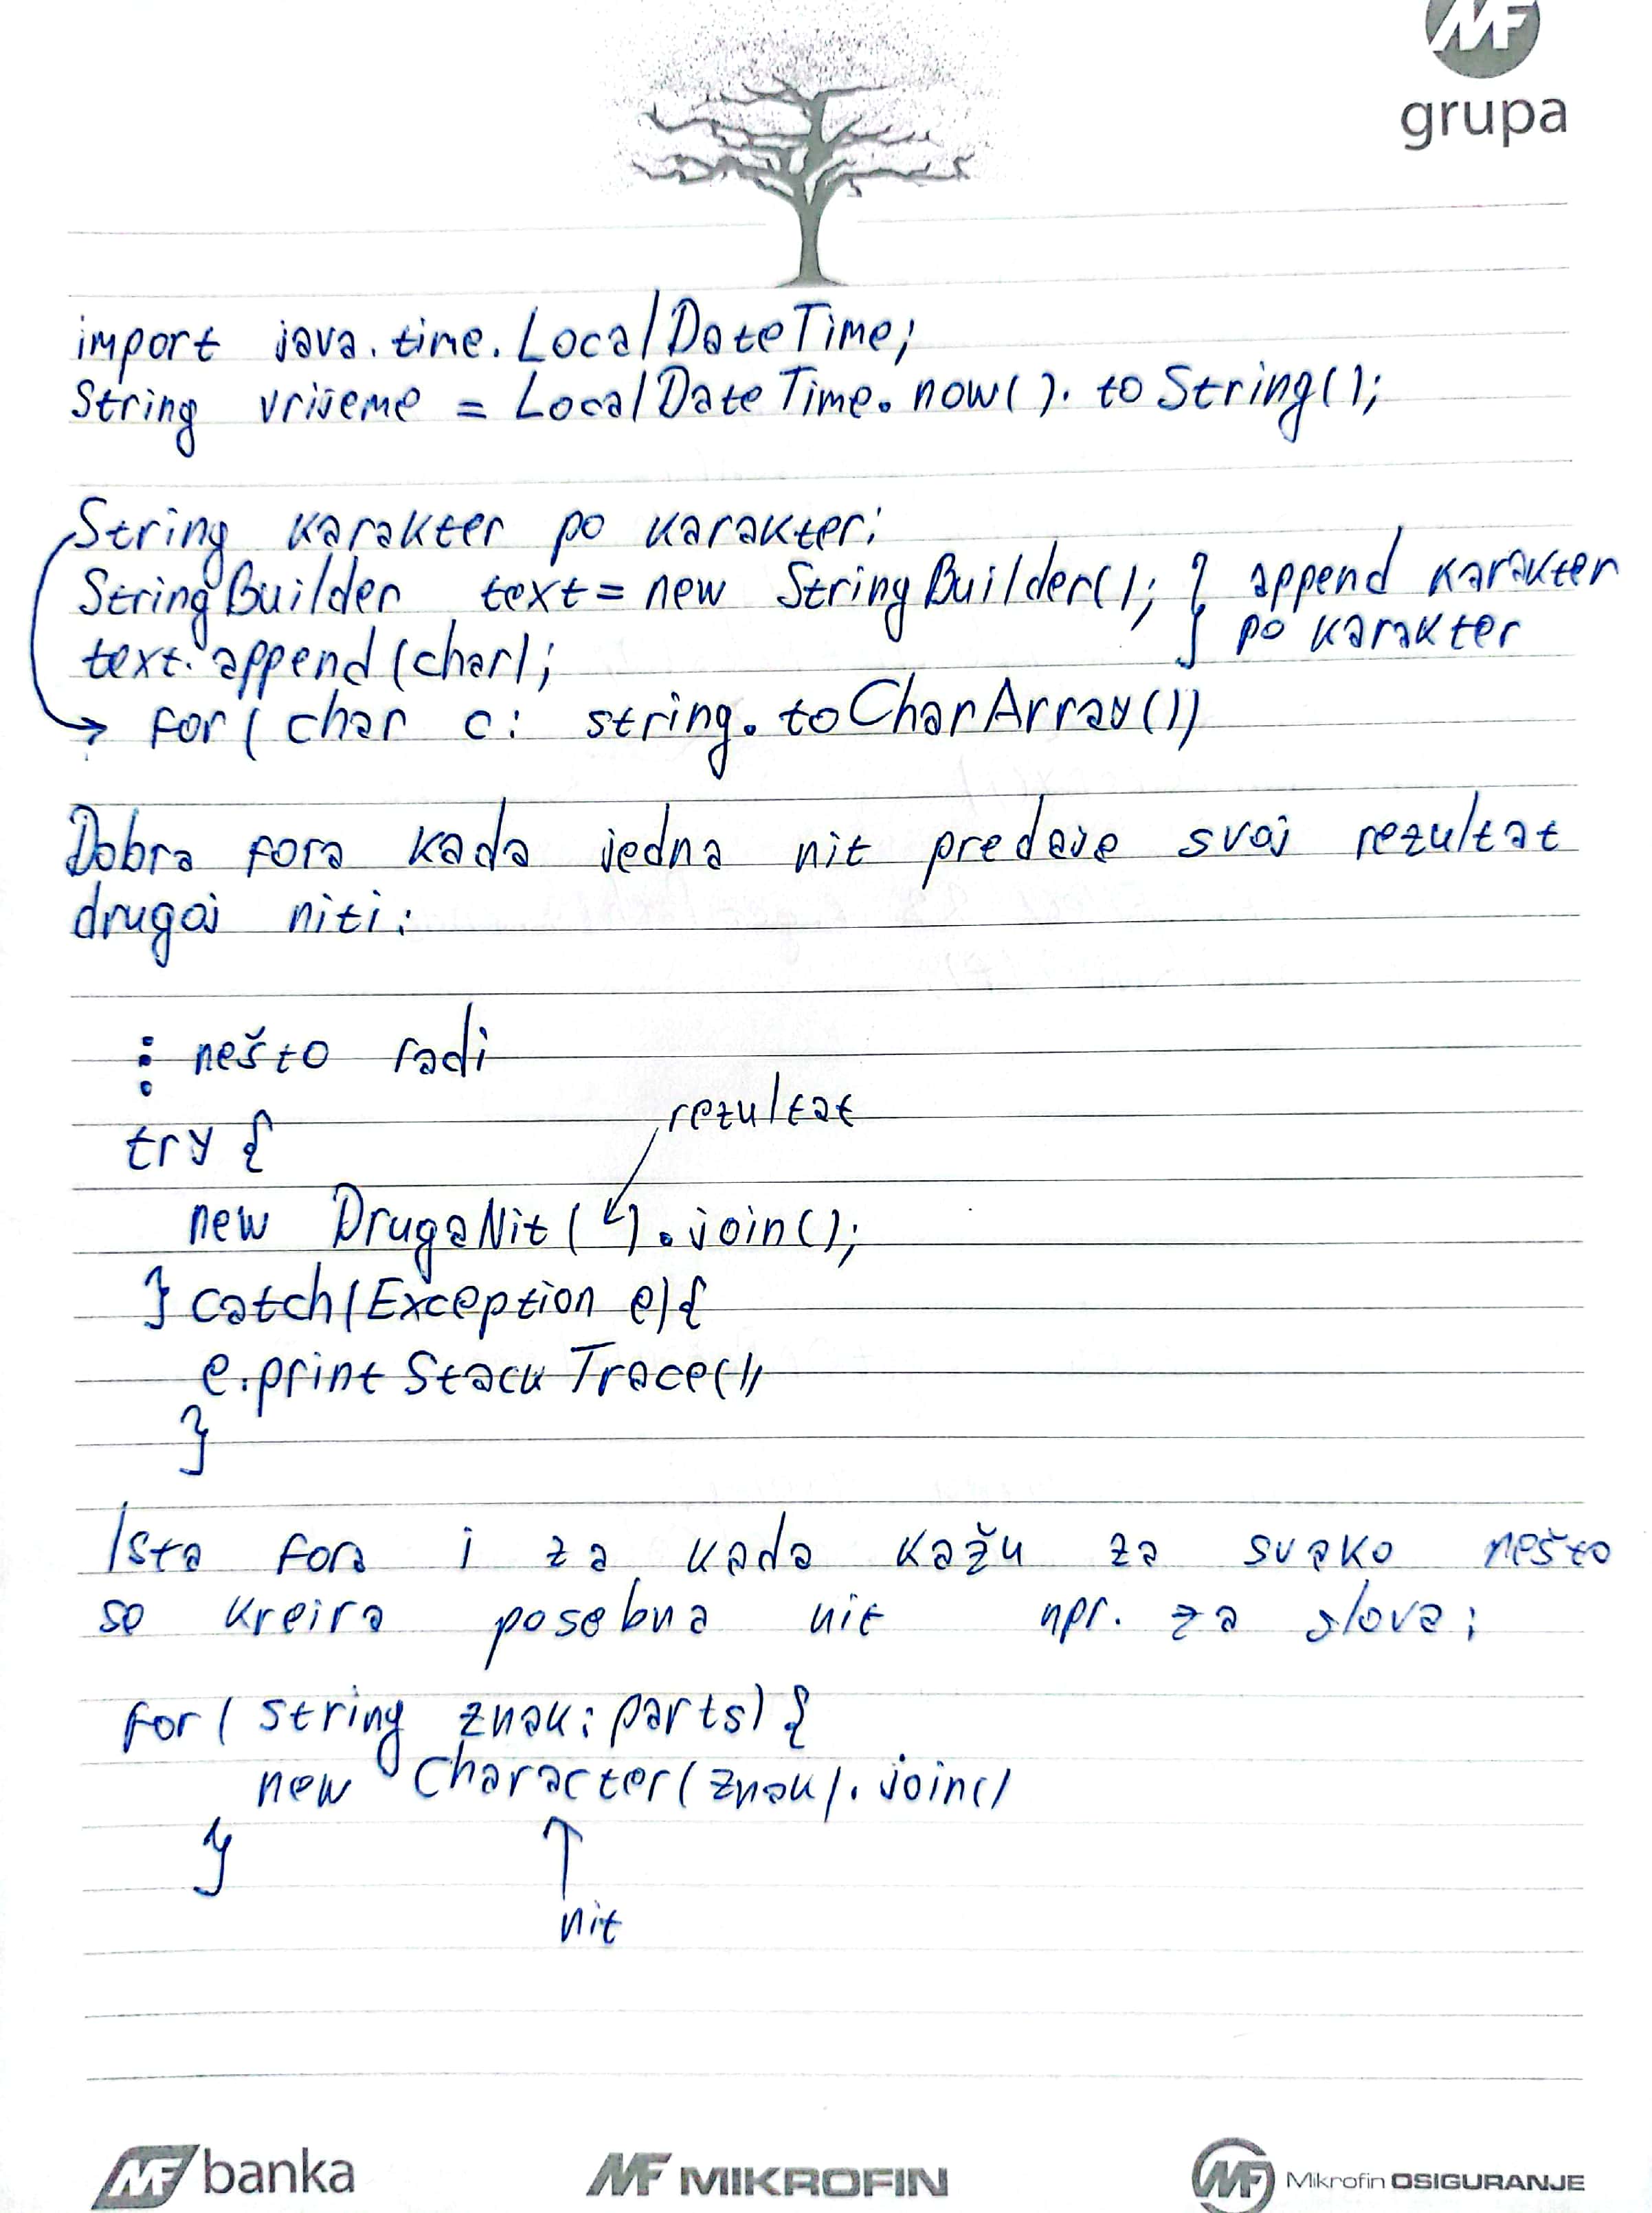 MF
grupa
import java.time.LocalDateTime;
String vrijeme = LocalDateTime.now().toString();
String karakter po karakter:
StringBuilder text = new StringBuilder(); } append karakter
text.append(char); po karakter
→ for( char c: string.toCharArray())
Dobra fora kada jedna nit predaje svoj rezultat
drugoj niti:
⋮ nešto radi
rezultat
try {
new DrugaNit( ).join();
} catch(Exception e){
e.printStackTrace();
}
Ista fora i za kada kažu za svako nešto
se kreira posebna nit npr. za slova:
for( string znak: parts) {
new Character(znak).join()
}
↑
nit
MF banka
MF MIKROFIN
MF Mikrofin OSIGURANJE